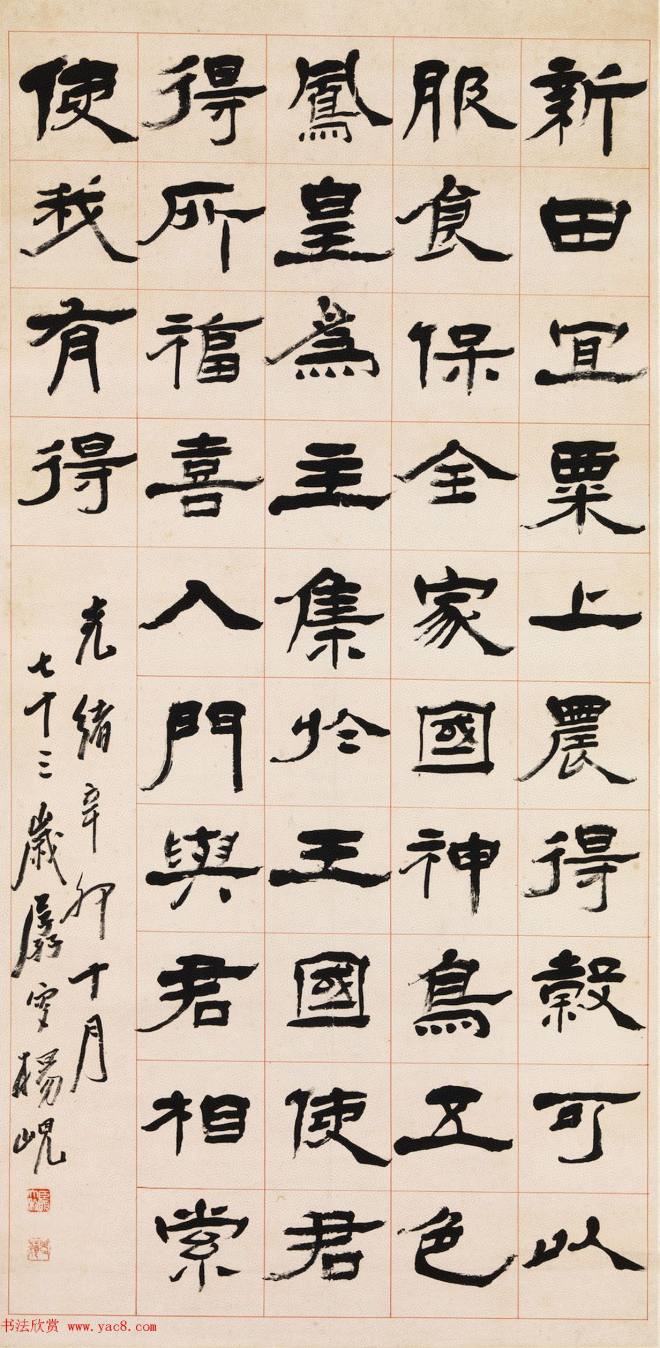 新田宜粟上農得穀可以
服食保全家國神鳥五色
鳳皇為主集於王國使君
得所福喜入門與君相索
使我有得
光緒辛卯十月
七十三歲孱叟楊峴
书法欣赏 www.yac8.com